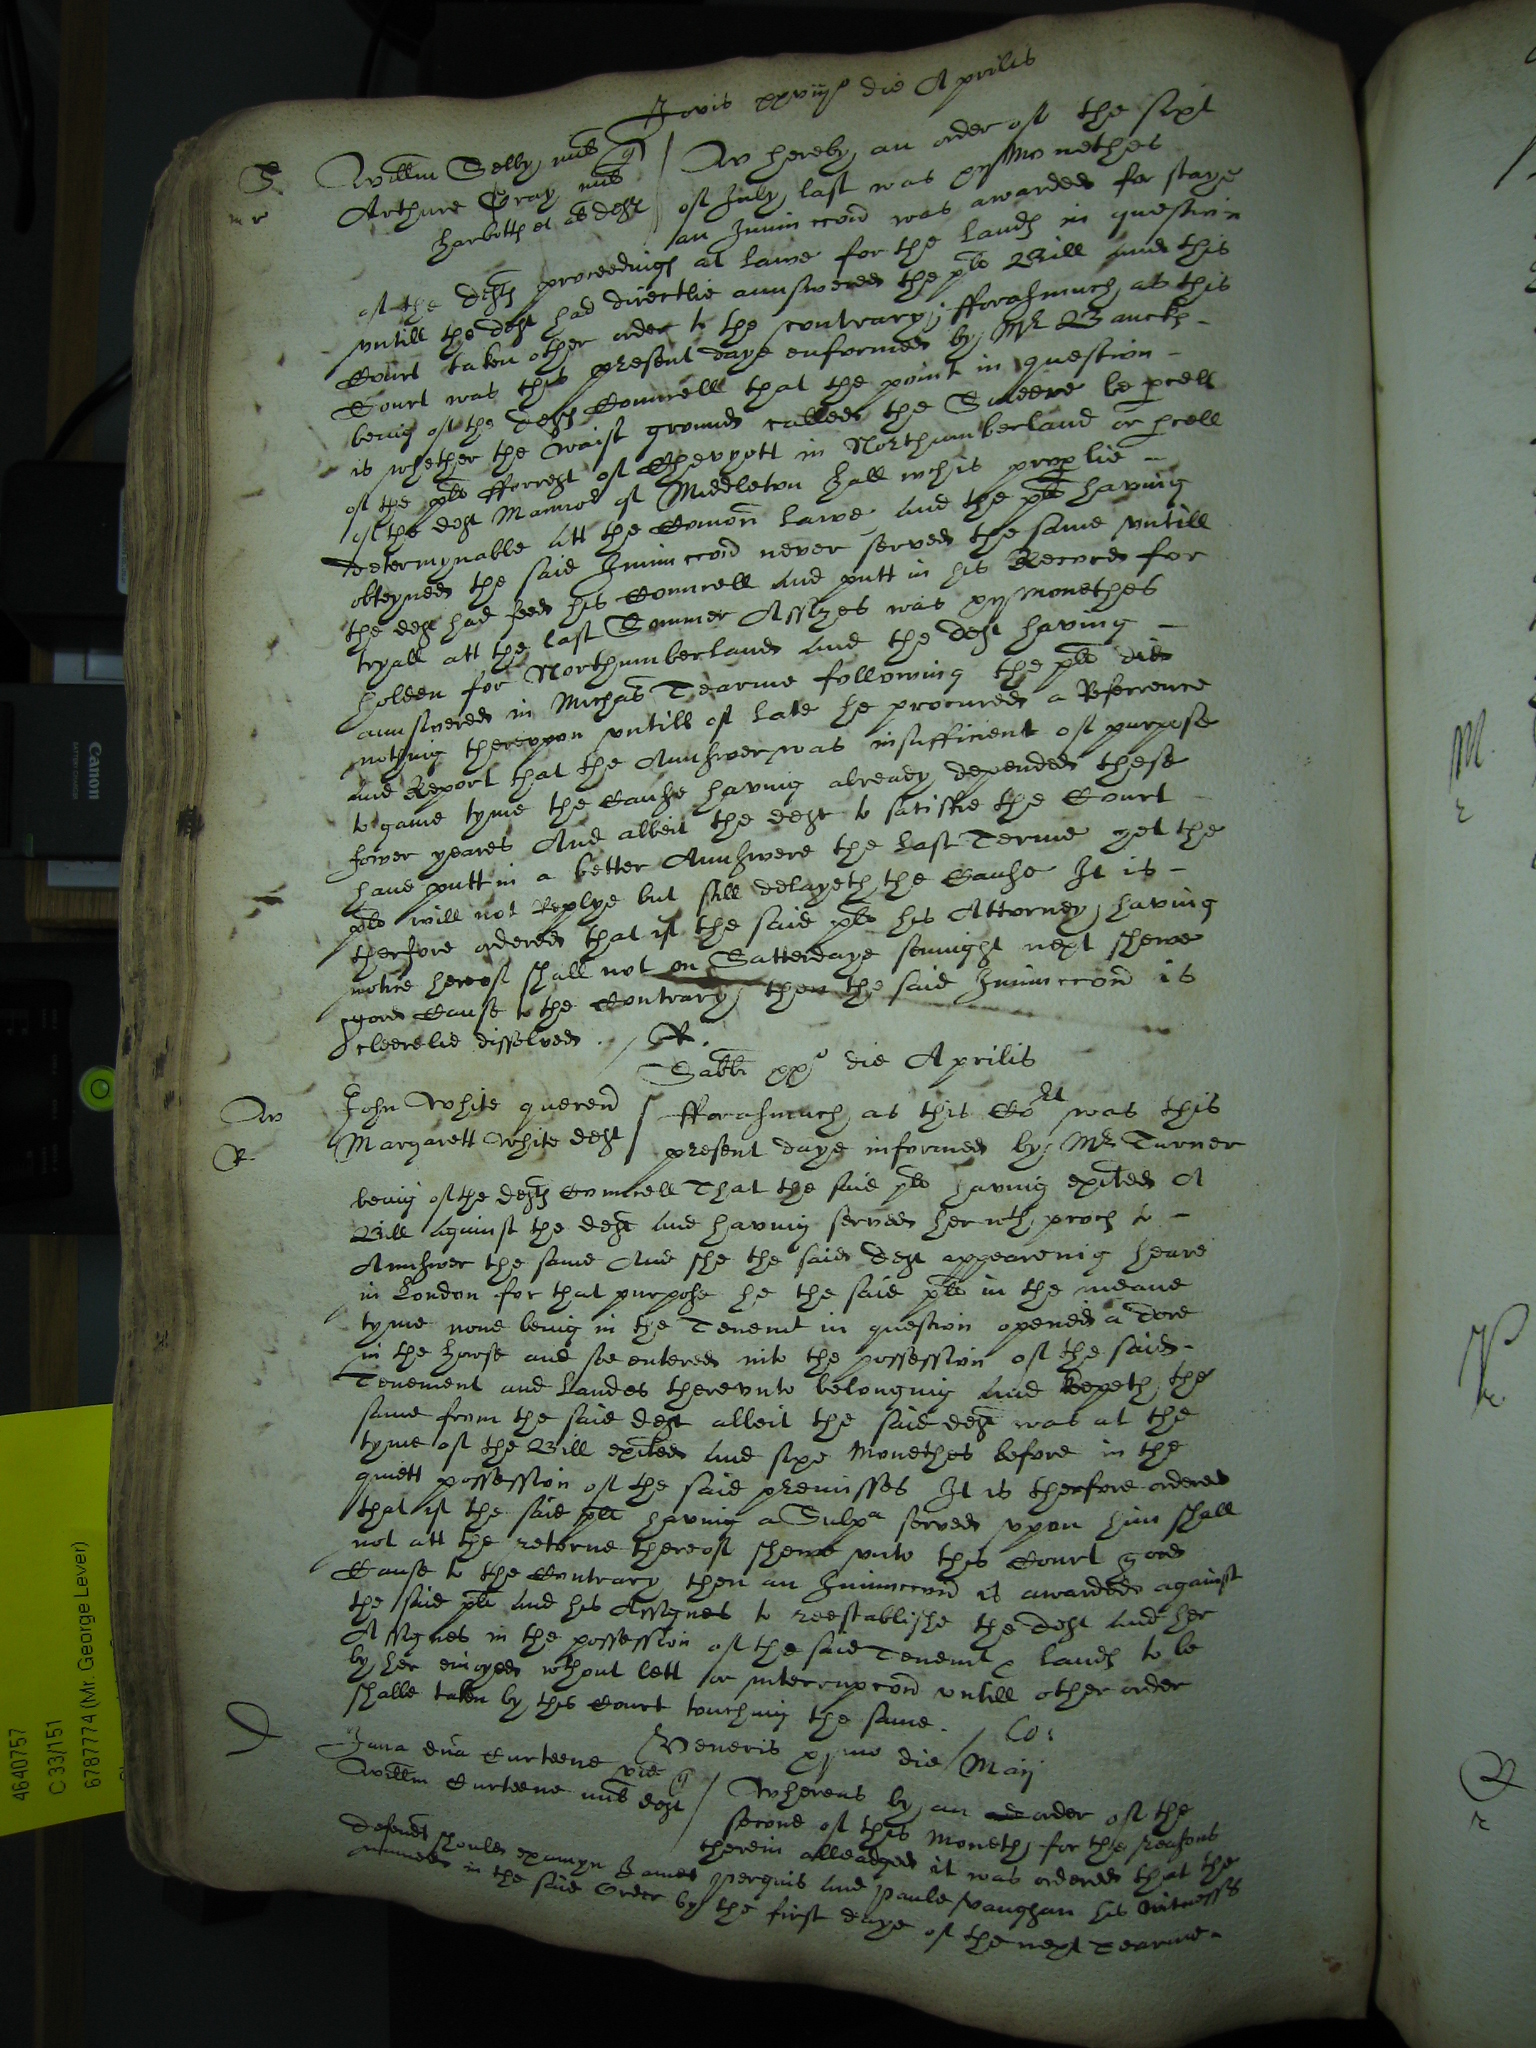 Jovis xxviijo die Aprilis
S
mr
Willm Selby miles q
Arthure Gray miles
Harbottle et al defts
Whereby an order of the sixt
of July last was xij Monethes
an Iniunccon was awarded for staye
of the defts proceedings at lawe for the lands in question
untill the deft had directlie aunswered the pls Bill and this
Court taken other order to the contrary; fforasmuch as this
Court was this present daye enformed by Mr Banckes
being of the defts Councell that the point in question
is whether the waist grounds called the be pcell
of the pls fforrest of Chevyott in Northumberland or pcell
of the deft Mannor of Middleton Hall wch is proplie
determynable att the Comon lawe and the pl having
obteyned the said Iniunccon never served the same untill
the deft had feed his Councell and putt in his Record for
tryall att the last Sommer Assizes was xij monethes
holden for Northumberland and the deft having
aunswered in Michas Tearme following the pl did
nothing thereupon untill of late he procured a Reference
and Report that the Aunswer was insufficient of purpose
to gaine tyme the Cause having already depended these
fower yeares And albeit the deft to satisfie the Court
have putt in a better Aunswere the last Terme yet the
pl will not Replye but still delayeth the Cause It is
therfore ordered that if the said pl his Attorney having
notice hereof shall not on Satterdaye sennight next shewe
good Cause to the Contrary then the said Iniunccon is
cleerelie dissolved. / R.
Sabbi xxxo die Aprilis
W
R
John White quer
Margarett White deft
fforasmuch as this Cort was this
present daye informed by Mr Turner
being of the defts Councell That the said pl having exited A
Bill against the deft and having served her wth proces to
Aunswer the same And she the said deft appearing heare
in London for that purpose he the said pl in the meane
tyme none being in the Tenemt in question opened a Dore
in the howse and soe entered into the possession of the said
Tenement and Landes thereunto belonging and keepeth the
same from the said deft albeit the said deft was at the
tyme of the Bill exited and sixe Monethes before in the
quiett possession of the said premisses It is therfore ordered
that if the said pl having a Subpa served upon him shall
not att the retorne thereof shewe unto this Court good
Cause to the Contrary then an Iniunccon is awarded against
the said pl and his Assignes to reestablishe the deft and her
Assignes in the possession of the said Tenemt & lands to be
by her enioyed wthout lett or interrupcon untill other order
shalbe taken by this Court touching the same. / Co:
Veneris die Maij
D
Jana dna Curteene vid q
Willm Curteene miles deft
Whereas by an order of the
second of this Moneth for the reasons
therein alleadged it was ordered that the
defendt should examyn James and Paule Vaughan his witnesses
named in the said Order by the first daye of the next Tearme
Canon
BATTERY CHARGER
4640757
C 33/151
6787774 (Mr. George Lever)